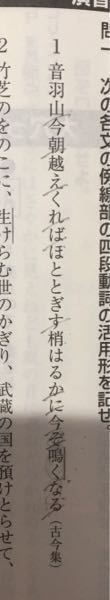 問一 次の各文の傍線部の四段動詞の活用形を記せ。
1 音羽山今朝越えくればほととぎす梢はるかに今ぞ鳴くなる(古今集)
2 竹芝のをのこに、生けらむ世のかぎり、武蔵の国を預けとらせて、